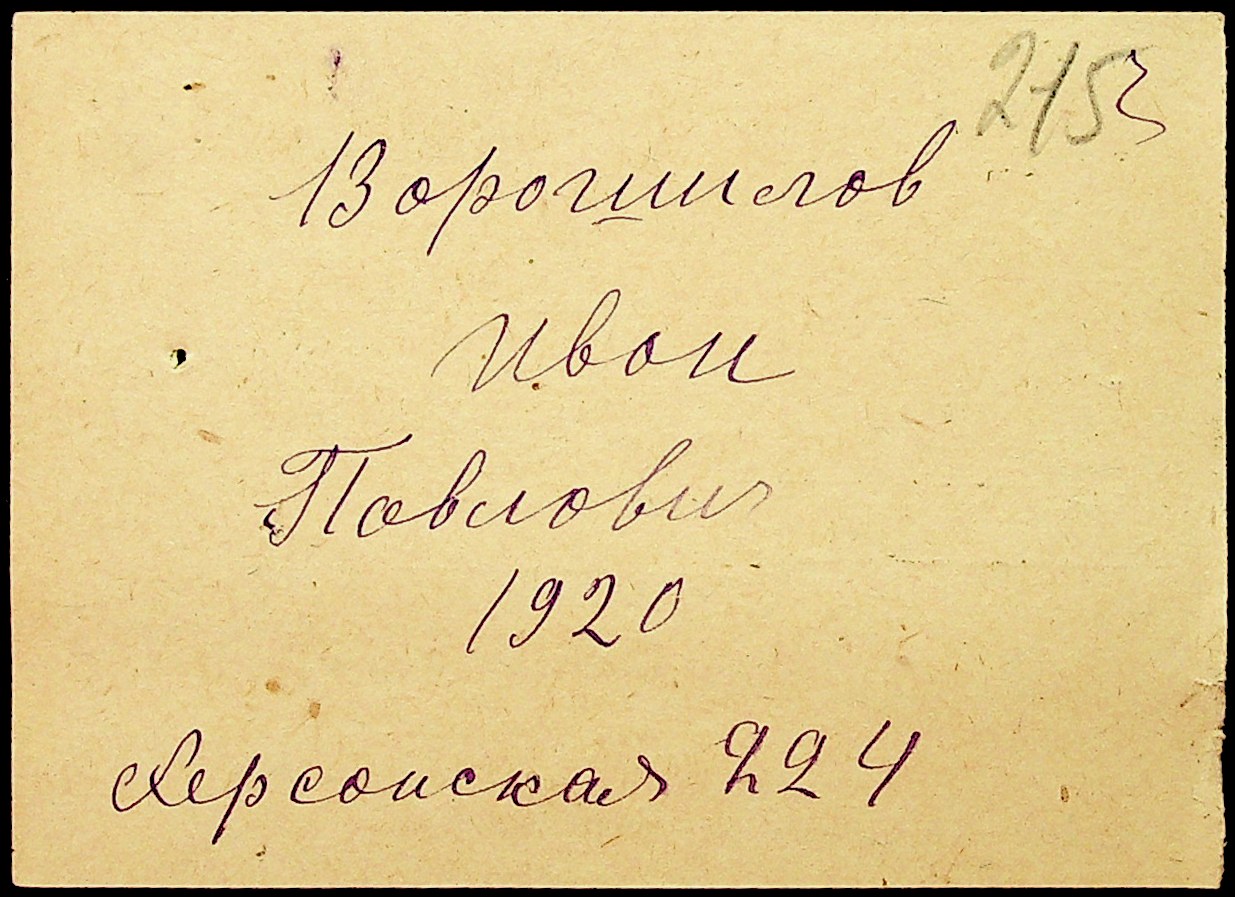 215
Ворошилов
Иван
Павлович
1920
Херсонская 224